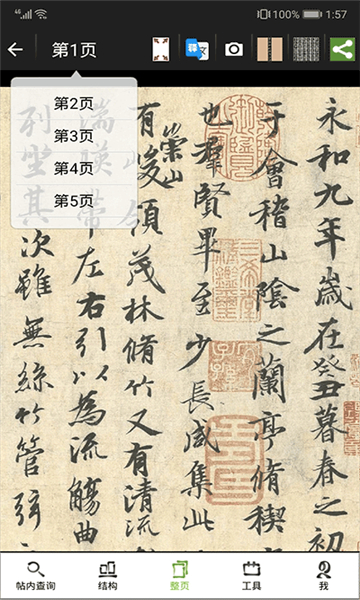 4G 100% 1:57
第1页
釋文
第2页
第3页
第4页
第5页
永和九年歲在癸丑暮春之初
于會稽山陰之蘭亭脩稧
也羣賢畢至少長咸集此
有崇山峻領茂林脩竹又有清流
湍暎帶左右引以為流觴曲
列坐其次雖無絲竹管弦
帖内查询
结构
整页
工具
我